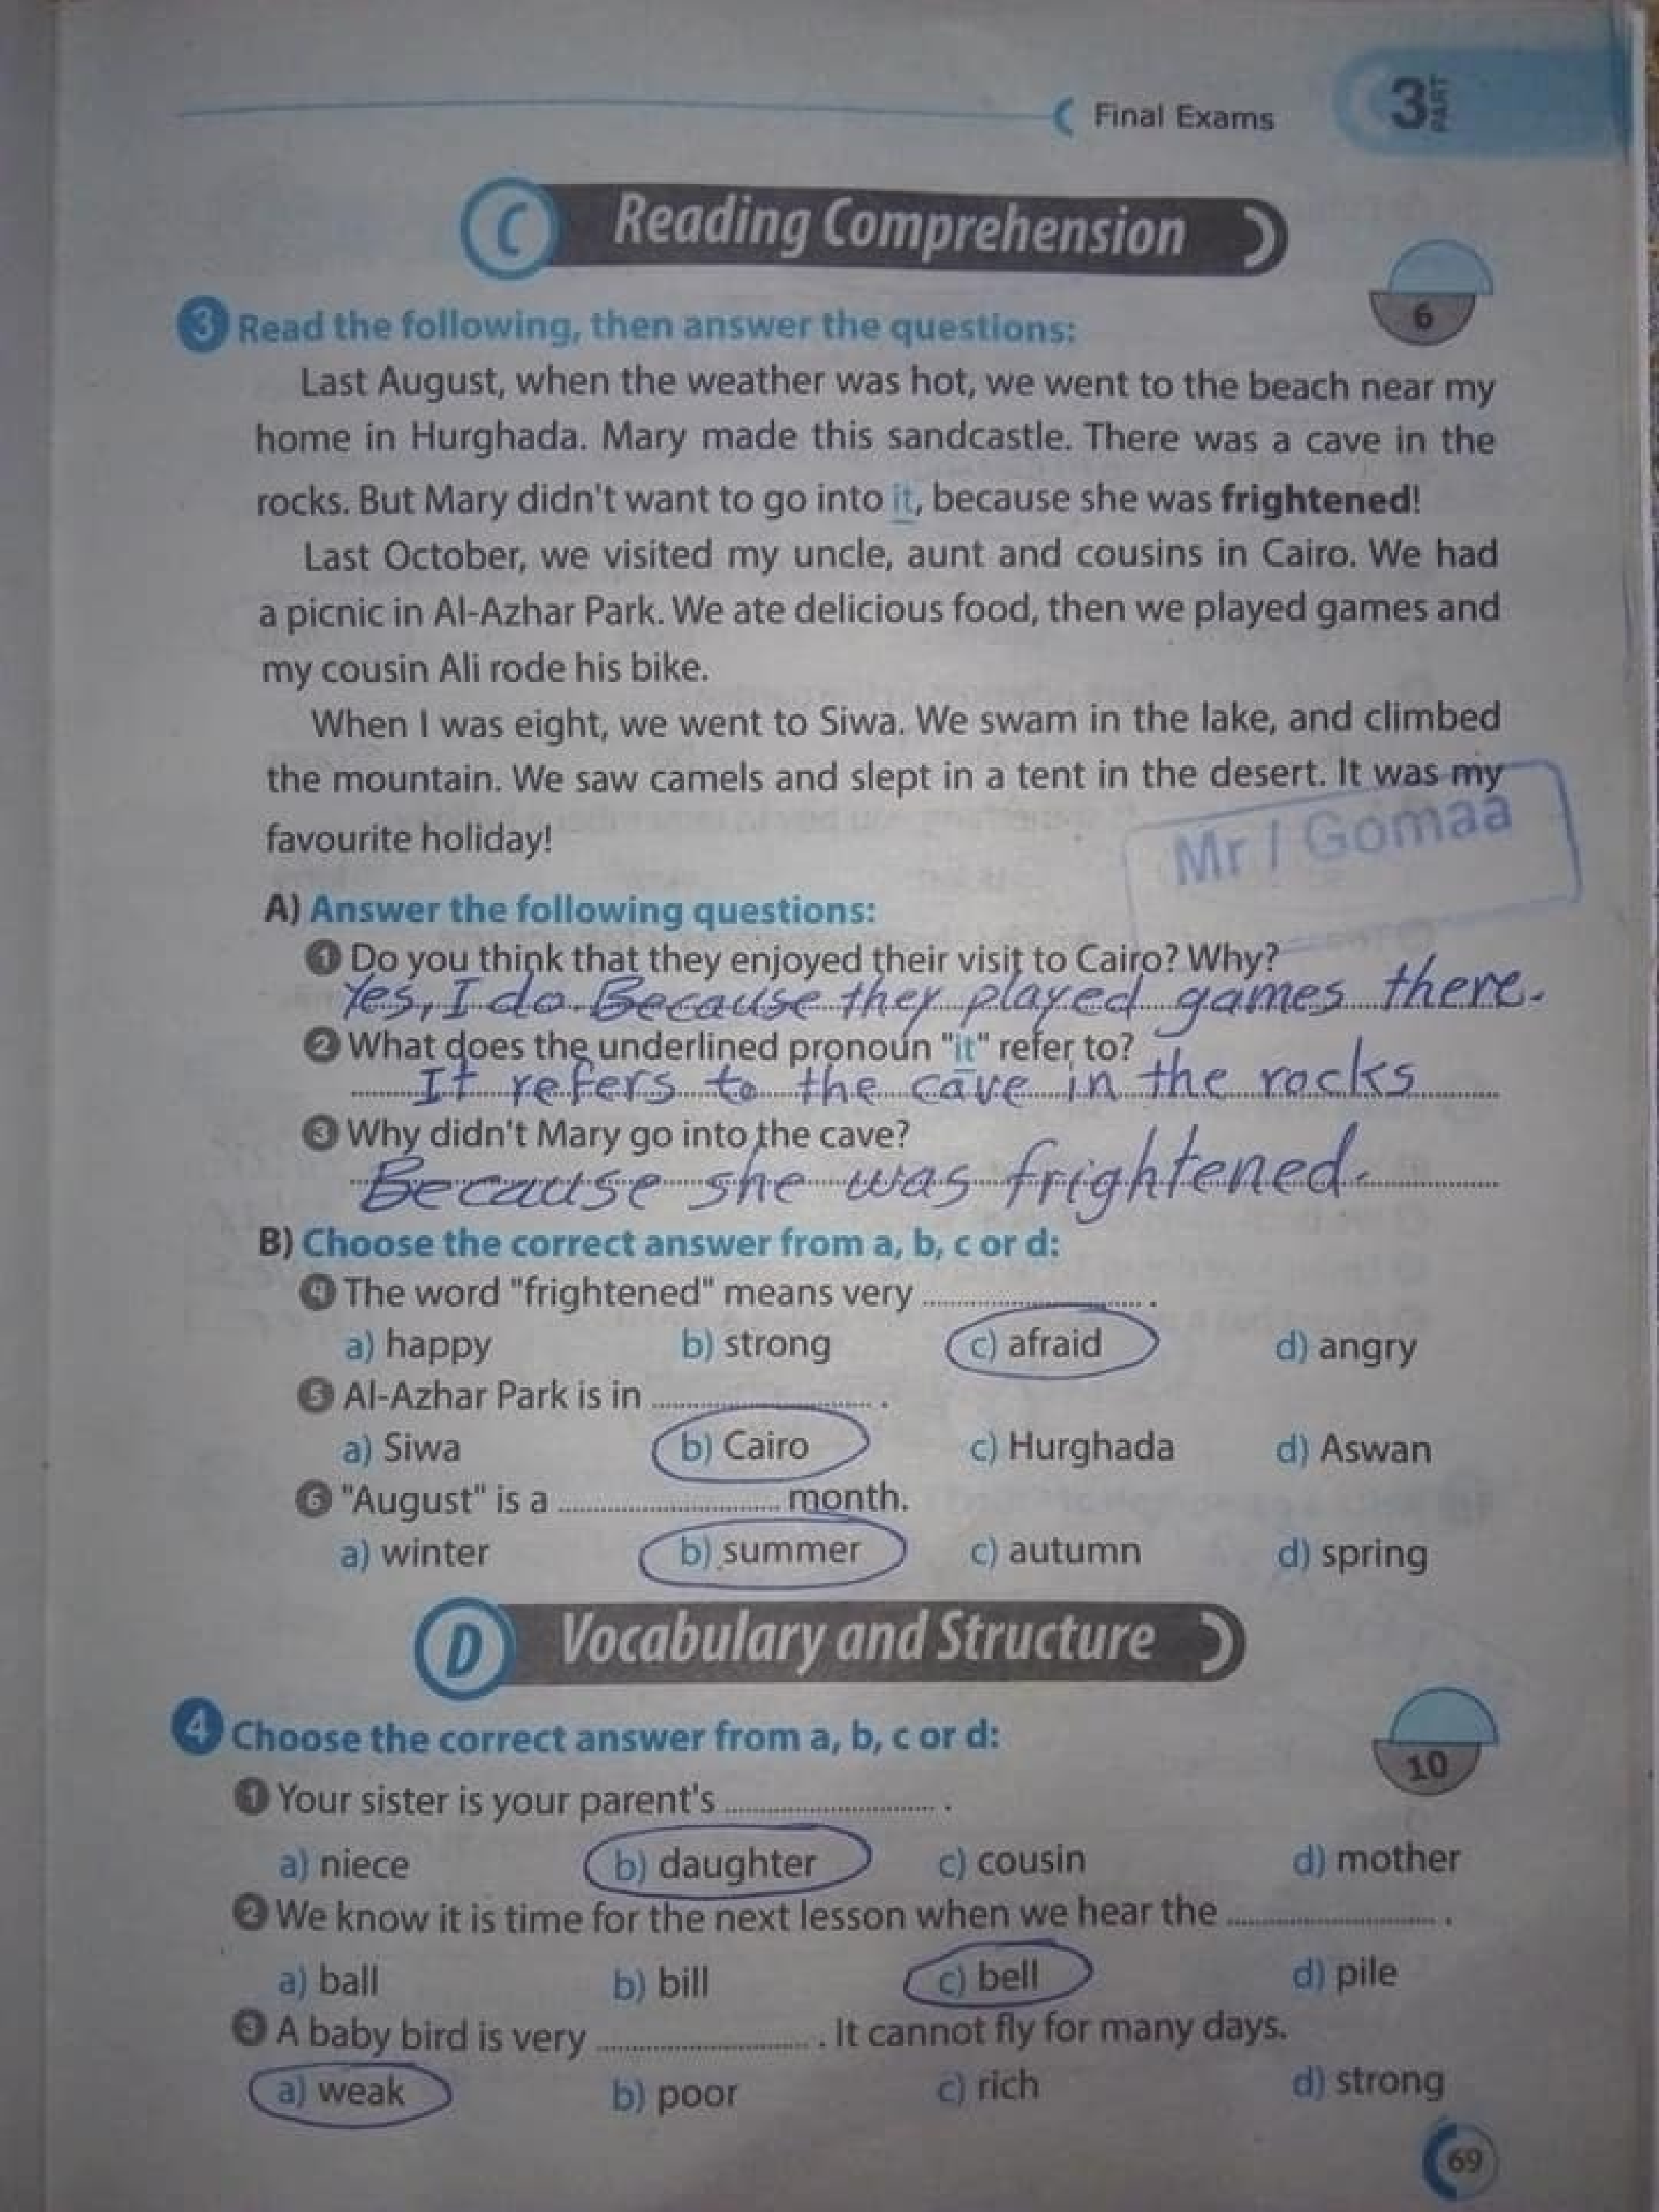 Final Exams
3 PART
C Reading Comprehension
6
3 Read the following, then answer the questions:
Last August, when the weather was hot, we went to the beach near my
home in Hurghada. Mary made this sandcastle. There was a cave in the
rocks. But Mary didn't want to go into it, because she was frightened!
Last October, we visited my uncle, aunt and cousins in Cairo. We had
a picnic in Al-Azhar Park. We ate delicious food, then we played games and
my cousin Ali rode his bike.
When I was eight, we went to Siwa. We swam in the lake, and climbed
the mountain. We saw camels and slept in a tent in the desert. It was my
favourite holiday!
Mr / Gomaa
A) Answer the following questions:
1 Do you think that they enjoyed their visit to Cairo? Why?
Yes, I do. Because they played games there.
2 What does the underlined pronoun "it" refer to?
It refers to the cave in the rocks
3 Why didn't Mary go into the cave?
Because she was frightened.
B) Choose the correct answer from a, b, c or d:
4 The word "frightened" means very .................... .
a) happy b) strong c) afraid d) angry
5 Al-Azhar Park is in .................... .
a) Siwa b) Cairo c) Hurghada d) Aswan
6 "August" is a .................... month.
a) winter b) summer c) autumn d) spring
D Vocabulary and Structure
4 Choose the correct answer from a, b, c or d:
10
1 Your sister is your parent's .................... .
a) niece b) daughter c) cousin d) mother
2 We know it is time for the next lesson when we hear the .................... .
a) ball b) bill c) bell d) pile
3 A baby bird is very .................... . It cannot fly for many days.
a) weak b) poor c) rich d) strong
69